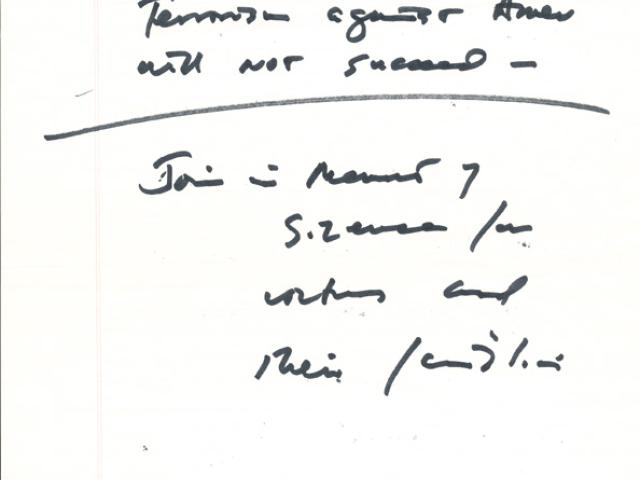 Terrorism against Amer
will not succeed —
Join in Moment of
Silence for
victims and
their families